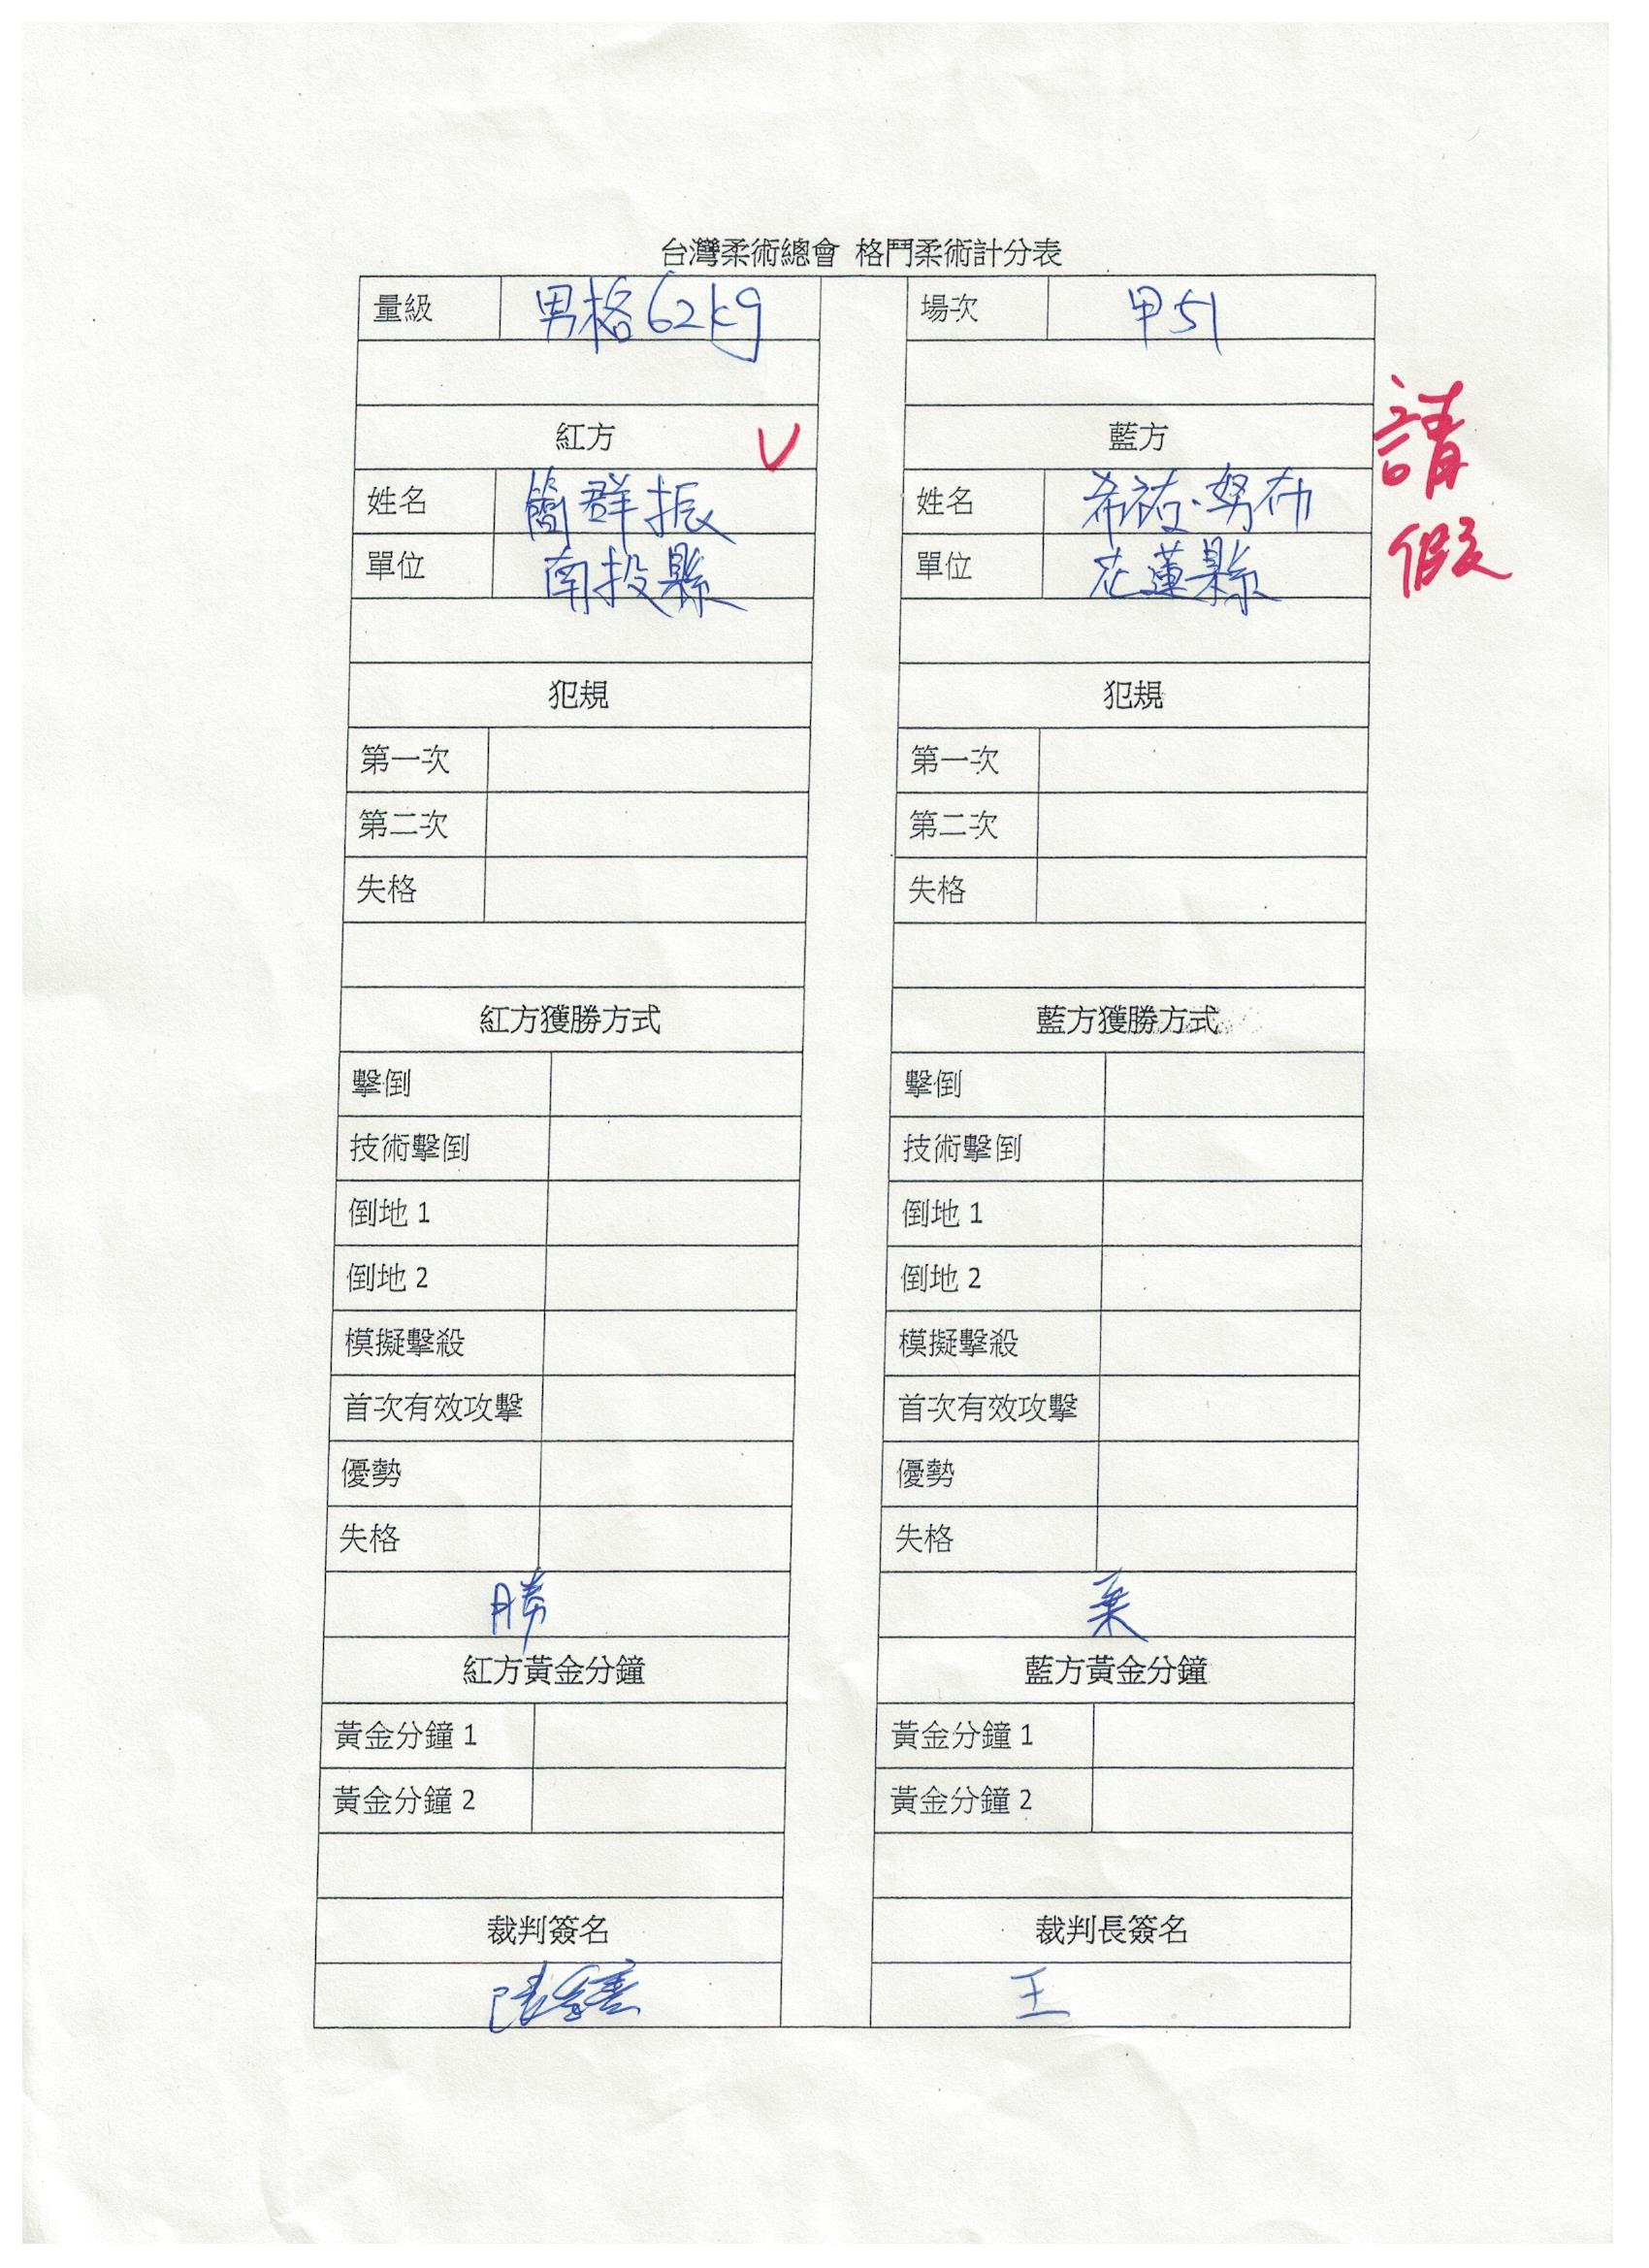 台灣柔術總會 格鬥柔術計分表
量級 男格62kg 場次 甲51
紅方 V 藍方
請假
姓名 簡群振 姓名 希祓·努布
單位 南投縣 單位 花蓮縣
犯規 犯規
第一次 第一次
第二次 第二次
失格 失格
紅方獲勝方式 藍方獲勝方式
擊倒 擊倒
技術擊倒 技術擊倒
倒地 1 倒地 1
倒地 2 倒地 2
模擬擊殺 模擬擊殺
首次有效攻擊 首次有效攻擊
優勢 優勢
失格 失格
勝 棄
紅方黃金分鐘 藍方黃金分鐘
黃金分鐘 1 黃金分鐘 1
黃金分鐘 2 黃金分鐘 2
裁判簽名 裁判長簽名
王